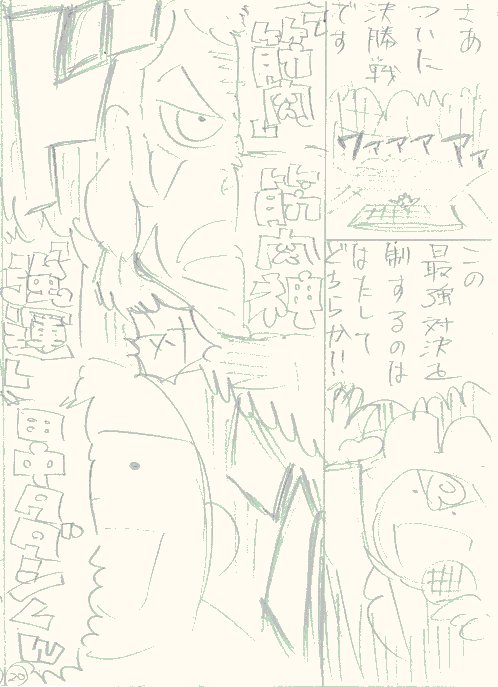 さあ
ついに
決勝戦
です
ワァァァァァ
この
最強対決を
制するのは
はたして
どちらか!!
「筋肉」
筋肉神
対
「強運」
田中ラッキー
20